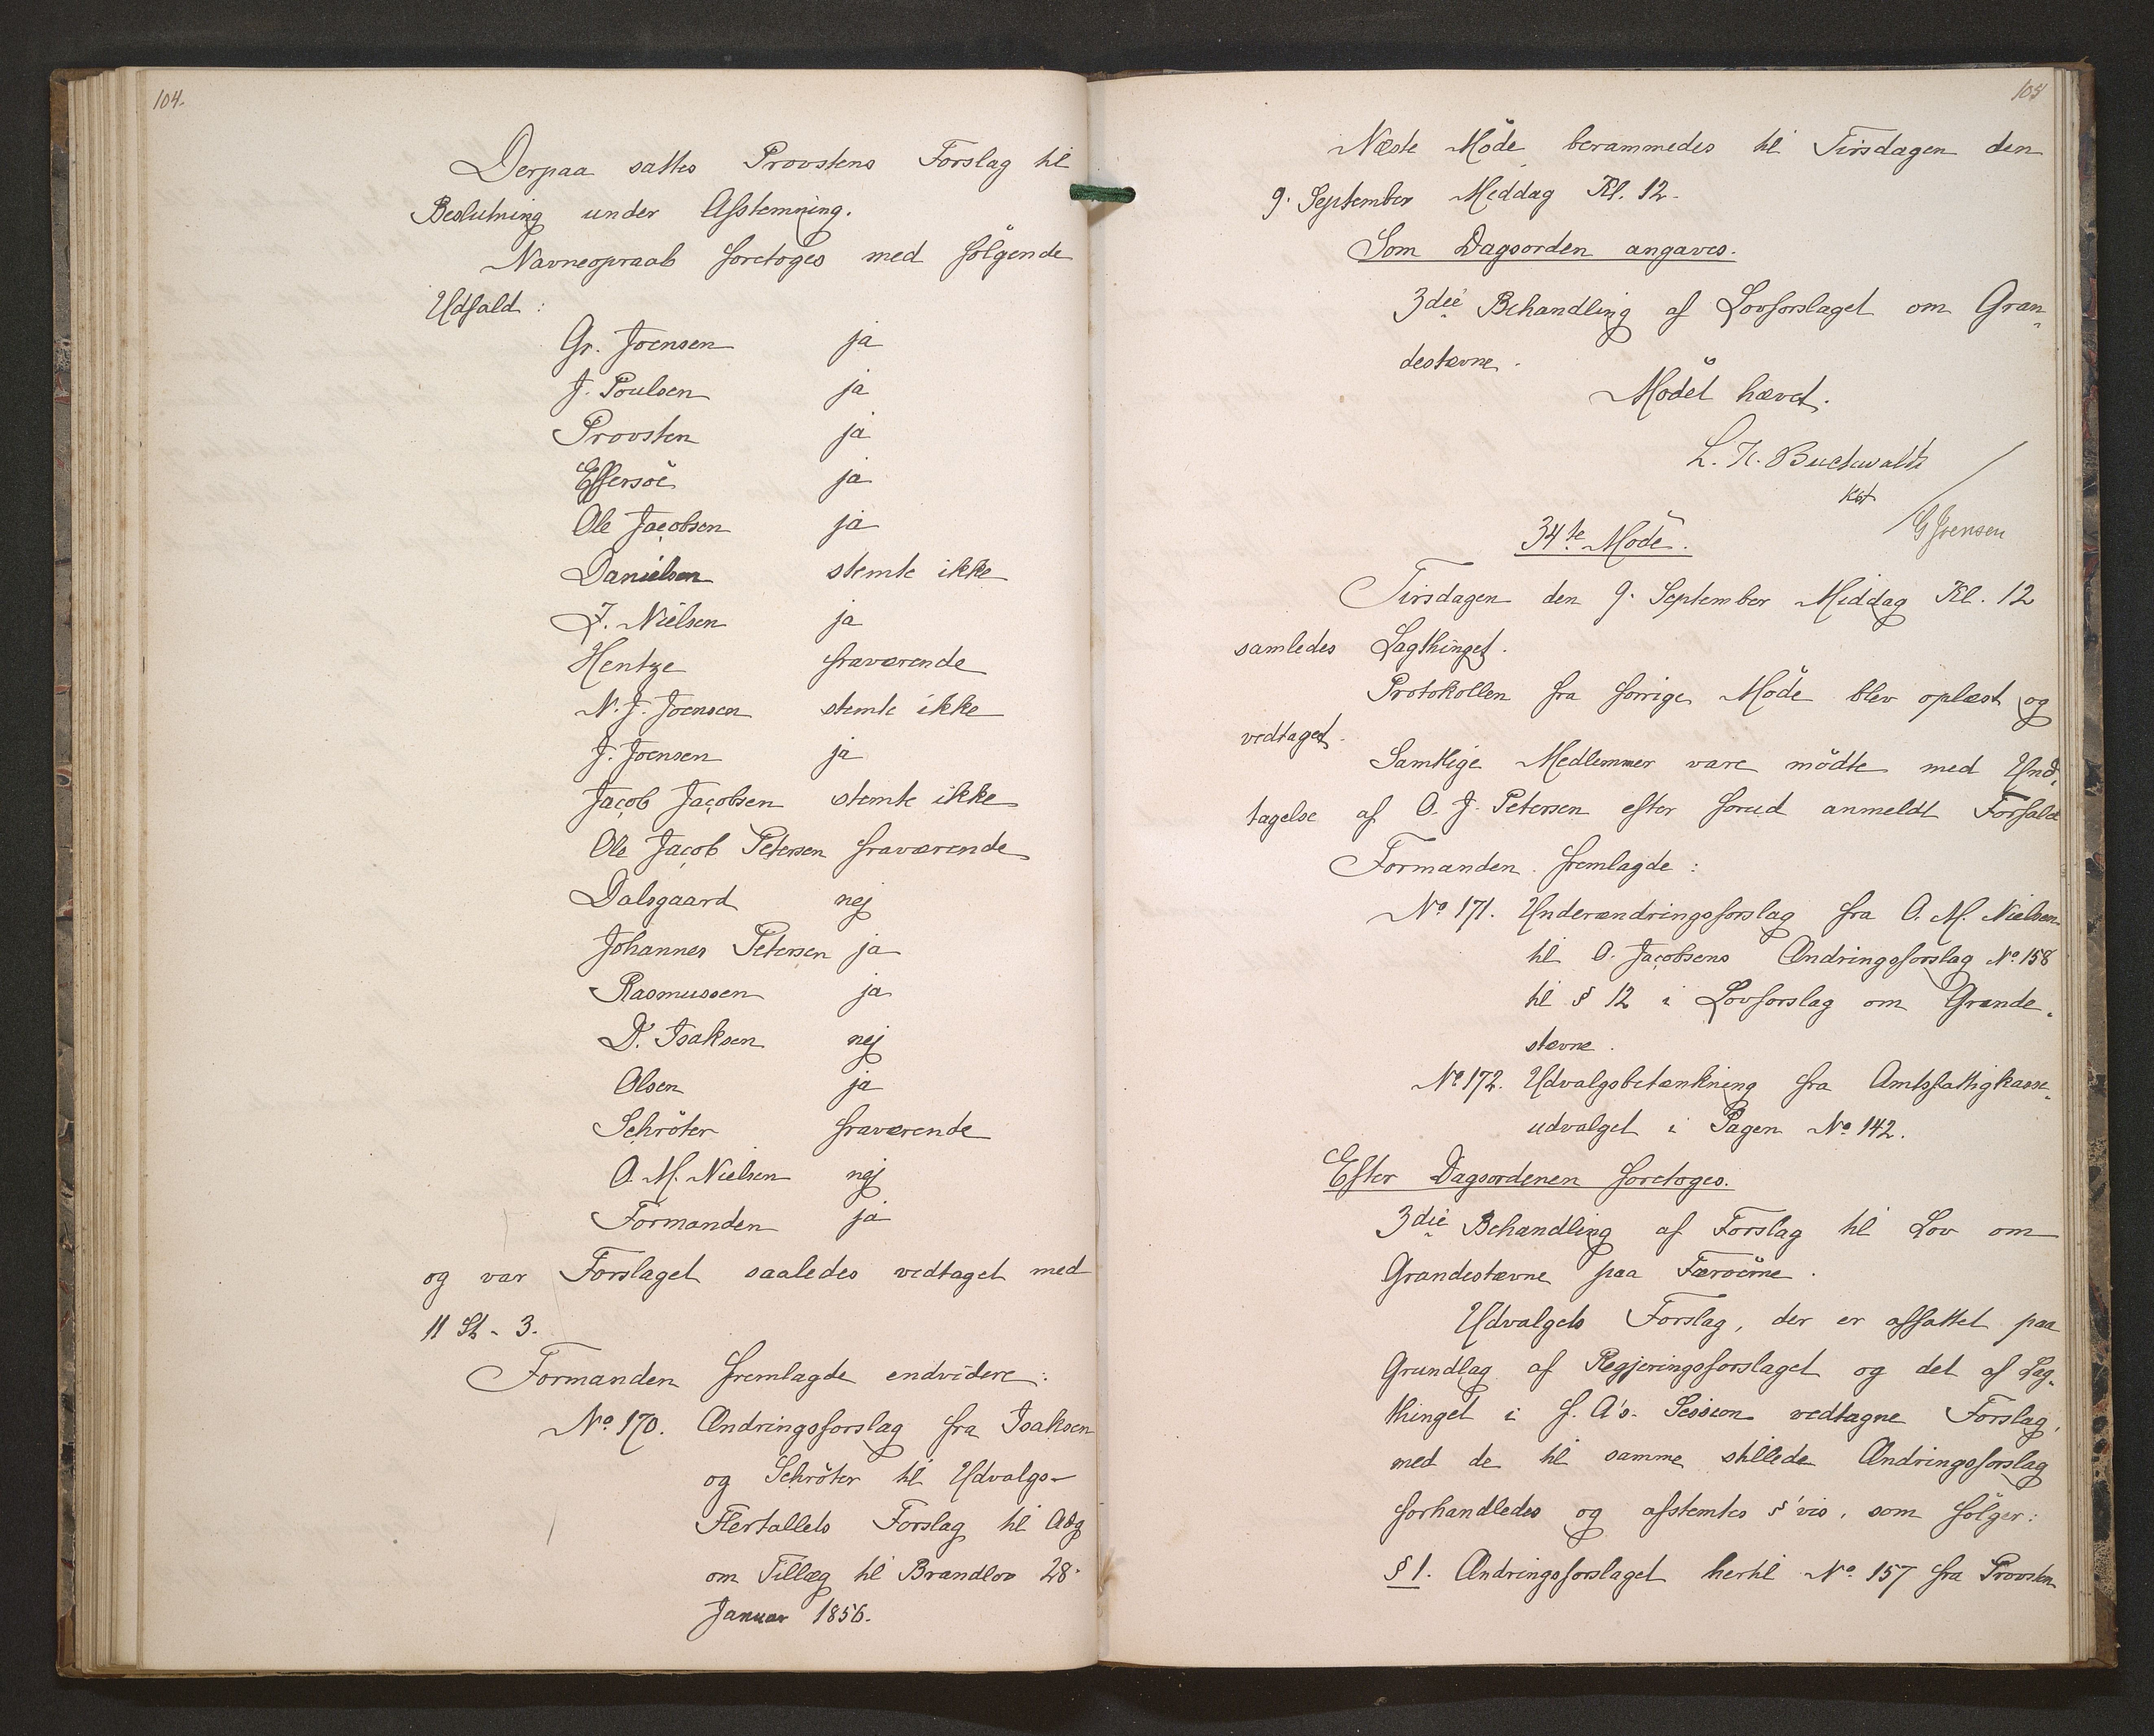 104.
Derpaa sattes Provstens Forslag til
Beslutning under Afstemning.
Navneopraab foretoges med følgende
Udfald:
Gr. Joensen ja
J. Poulsen ja
Provsten ja
Effersöe ja
Ole Jacobsen ja
Danielsen stemte ikke
J. Nielsen ja
Hentze fraværende
N. J. Joensen stemte ikke
J. Joensen ja
Jacob Jacobsen stemte ikke
Ole Jacob Petersen fraværende
Dalsgaard nej
Johannes Petersen ja
Rasmussen ja
D. Isaksen nej
Olsen ja
Schröter fraværende
O. M. Nielsen nej
Formanden ja
og var Forslaget saaledes vedtaget med
11 St - 3.
Formanden fremlagde endvidere:
No 170. Ændringsforslag fra Isaksen
og Schröter til Udvalgs-
Flertallets Forslag til Adg
om Tillæg til Brandlov 28.
Januar 1856.
105
Næste Möde berammedes til Tirsdagen den
9. September Middag Kl. 12.
Som Dagsorden angaves.
3die Behandling af Lovforslaget om Gran-
destævne.
Mödet hævet.
L. K. Buchwaldt
Kst
G Joensen
34te Möde.
Tirsdagen den 9. September Middag Kl. 12
samledes Lagthinget.
Protokollen fra forrige Möde blev oplæst og
vedtaget.
Samtlige Medlemmer vare mödte med Und-
tagelse af O. J. Petersen efter forud anmeldt Forfald
Formanden fremlagde:
No 171. Underændringsforslag fra O. M. Nielsen
til O. Jacobsens Ændringsforslag No 158
til § 12 i Lovforslag om Grande-
stævne.
No 172. Udvalgsbetænkning fra Amtsfattigkasse-
udvalget i Sagen No 142.
Efter Dagsordenen foretoges.
3die Behandling af Forslag til Lov om
Grandestævne paa Færöerne.
Udvalgets Forslag, der er affattet paa
Grundlag af Regjeringsforslaget og det af Lag-
thinget i f. A's. Session vedtagne Forslag,
med de til samme stillede Ændringsforslag
forhandledes og afstemtes §'vis, som fölger:
§ 1. Ændringsforslaget hertil No 157 fra Provsten